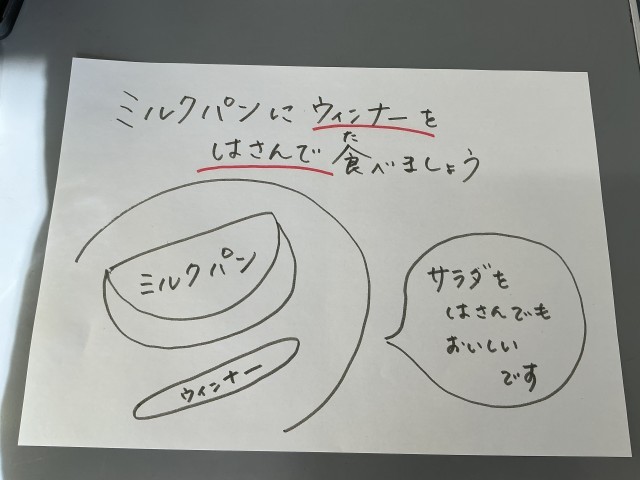 ミルクパンに ウィンナーを
はさんで 食べましょう
た
ミルクパン
ウィンナー
サラダを
はさんでも
おいしい
です